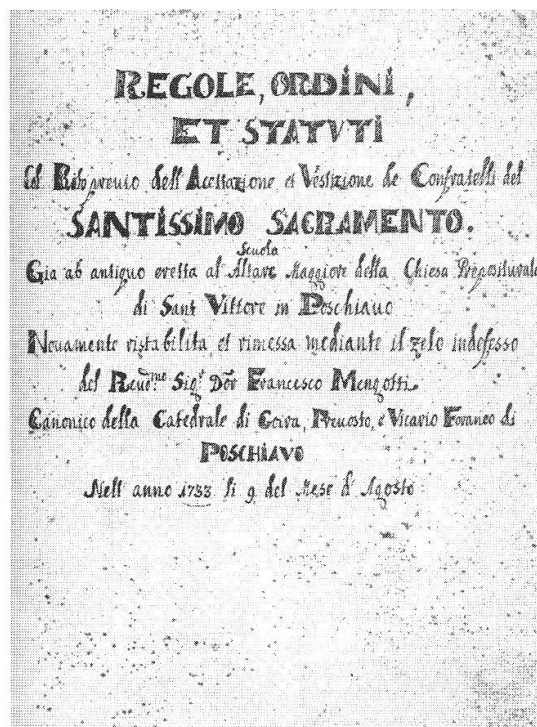 REGOLE, ORDINI,
ET STATVTI
Col Rito previo dell'Acettazione et Vestizione de Confratelli del
SANTISSIMO SACRAMENTO.
Scuola
Gia ab antiquo eretta al Altare Maggiore della Chiesa Prepositurale
di Sant Vittore in Poschiavo
Novamente ristabilita et rimessa mediante il zelo indefesso
del Revd.mo Sig.r Dor Francesco Mengotti
Canonico della Catedrale di Coira, Prevosto, e Vicario Foraneo di
POSCHIAVO
Nell anno 1733 li 9 del Mese d'Agosto